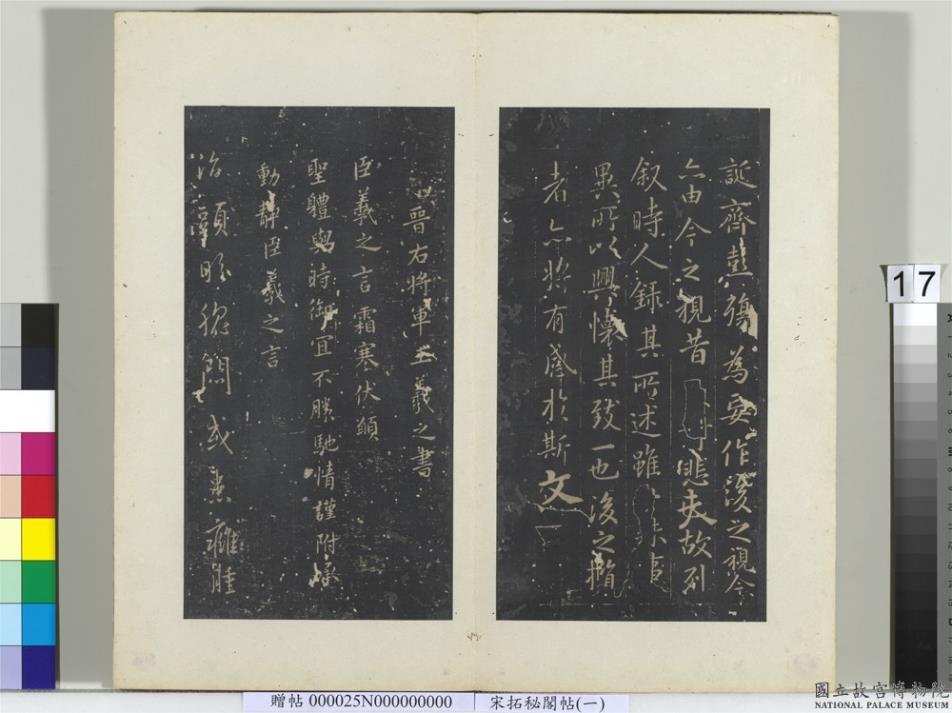 誕齊彭殤為妄作後之視今
亦由今之視昔悲夫故列
叙時人錄其所述雖世殊事
異所以興懷其致一也後之攬
者亦將有感於斯文
晉右將軍王羲之書
臣羲之言霜寒伏願
聖體與時御宜不勝馳情謹附承
動靜臣羲之言
治頭眩
問或患癰腫
17
贈帖 000025N000000000
宋拓秘閣帖(一)
國立故宮博物院
NATIONAL PALACE MUSEUM